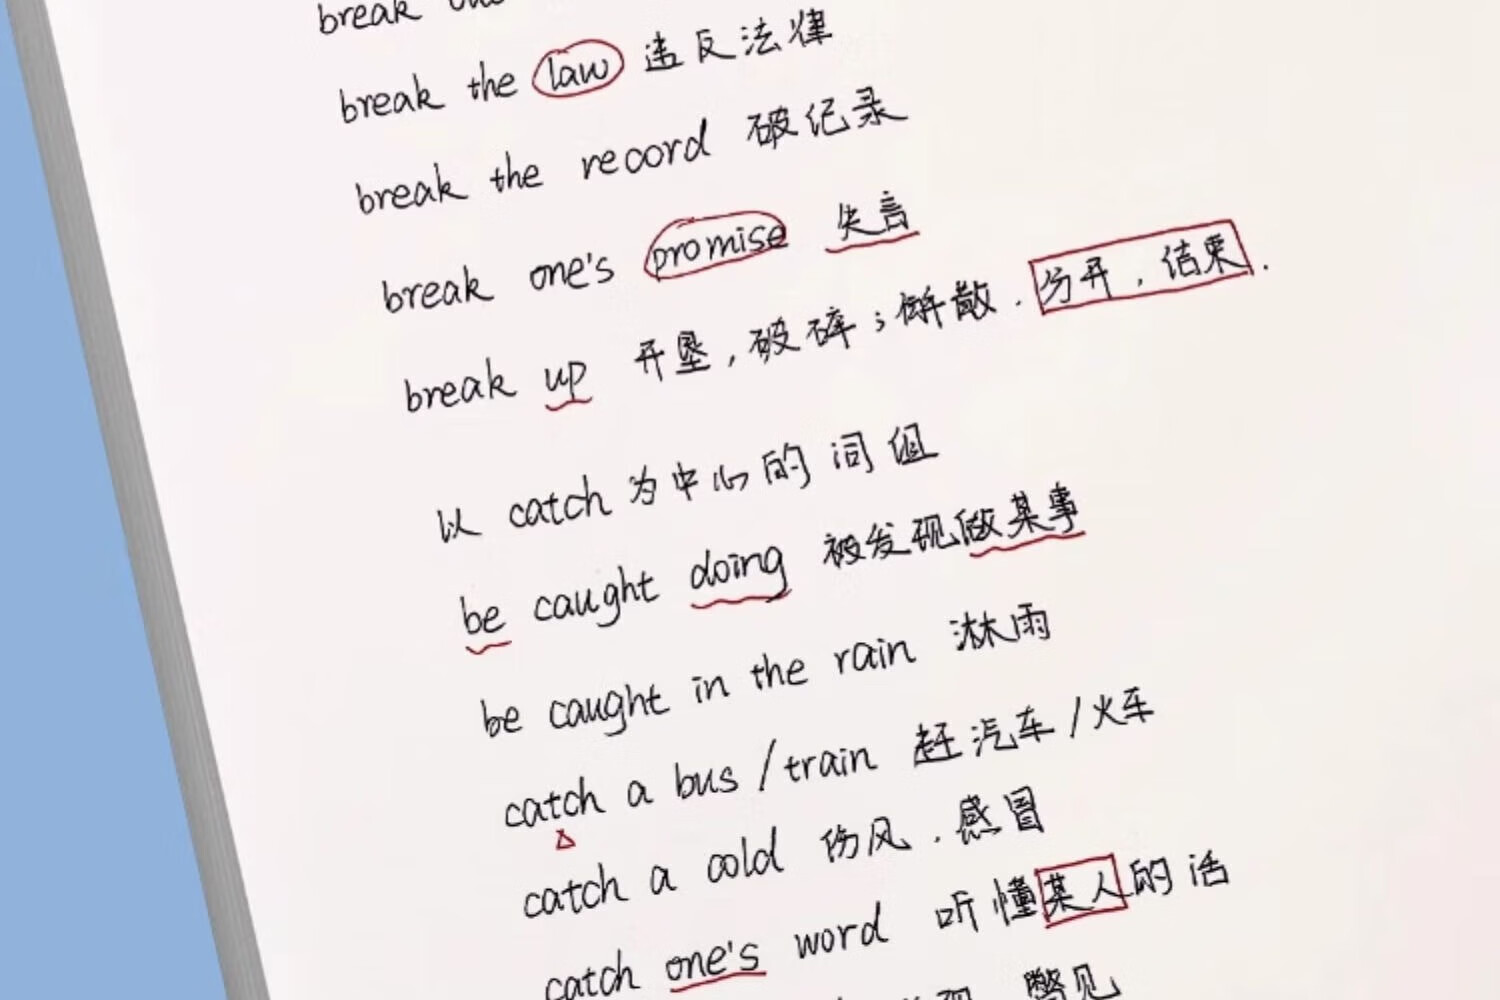 break
break the law 违反法律
break the record 破纪录
break one's promise 失言
break up 开垦，破碎；解散．分开，结束．
以 catch 为中心的词组
be caught doing 被发现做某事
be caught in the rain 淋雨
catch a bus / train 赶汽车 / 火车
catch a cold 伤风．感冒
catch one's word 听懂某人的话
瞥见